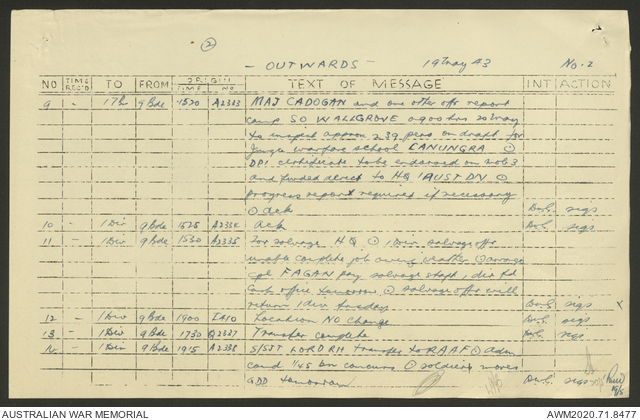 ②
- OUTWARDS - 19 May 43 No. 2
NO TIME REC'D TO FROM ORIGIN TIME NO. TEXT OF MESSAGE INT ACTION
9 - 9 Bde 1520 A2333 MAJ CADOGAN and one other offr report
camp SO WALLGROVE 0900 hrs 20 May
to inspect approx 239 pers on draft for
Jungle warfare school CANUNGRA ⊙
DDI certificate to be endorsed on
and direct to HQ 1 AUST DIV ⊙
progress report required if necessary
⊙ ack sigs
10 - 1 Div 9 Bde 1525 A2334 Ack sigs
11 - 1 Div 9 Bde 1530 A2335 For salvage HQ ⊙ 1 Div salvage offr
unable complete job ⊙
cpl FAGAN pay salvage staff 1 div
office tomorrow ⊙ salvage offr will
return 1 div tuesday sigs
12 - 1 Div 9 Bde 1900 Location NO change sigs
13 - 1 Div 9 Bde 1730 Transfer complete sigs
1 Div 9 Bde 1915 A2338 S/SJT LORD RH transfer to RAAF ⊙ adm
comd 1/45 bn concurs ⊙ soldier moves
GDD tomorrow sigs
AUSTRALIAN WAR MEMORIAL AWM2020.71.8477